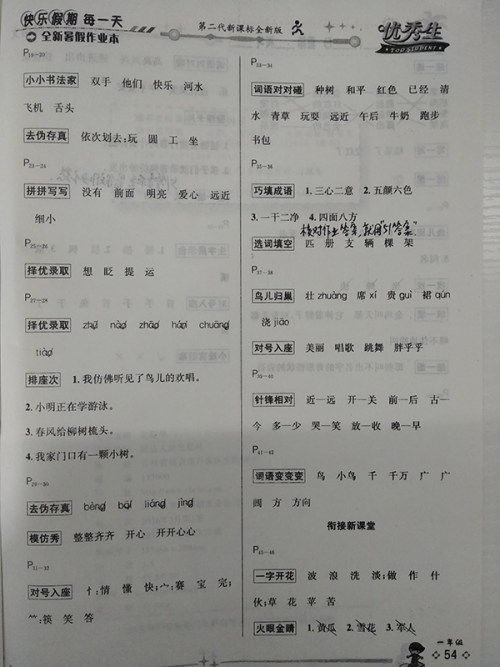 快乐假期 每一天
全新暑假作业本
第二代新课标全新版
优秀生
TOP STUDENT
P19—20
小小书法家 双手 他们 快乐 河水
飞机 舌头
去伪存真 依次划去:玩 圆 工 坐
P21—24
拼拼写写 没有 前面 明亮 爱心 远近
细小
P25—26
择优录取 想 眨 提 运
P27—28
择优录取
排座次 1.我仿佛听见了鸟儿的欢唱。
2.小明正在学游泳。
3.春风给柳树梳头。
4.我家门口有一颗小树。
P29—30
去伪存真
模仿秀 整整齐齐 开心 开开心心
P31—32
对号入座 忄:情 懂 快;宀:赛 宝 完;
⺮:筷 笑 答
P33—34
词语对对碰 种树 和平 红色 已经 清
水 青草 玩耍 远近 午后 牛奶 跑步
书包
P35—36
巧填成语 1.三心二意 2.五颜六色
3.一干二净 4.四面八方
核对作业答案,就用
选词填空 匹 册 支 辆 棵 架
P37—38
鸟儿归巢 壮 zhuàng 席 xí 贵 guì 裙 qún
浇 jiāo
对号入座 美丽 唱歌 跳舞 胖乎乎
P39—40
针锋相对 近—远 开—关 前—后 古—
今 多—少 哭—笑 放—收 晚—早
P41—42
词语变变变 鸟 小鸟 千 千万 广 广
阔 方 方向
衔接新课堂
P45—46
一字开花 波 浪 洗 淡;做 作 什
伙;草 花 苹 苦
火眼金睛 1.黄瓜 2.雪花 3.军人
一年级
54